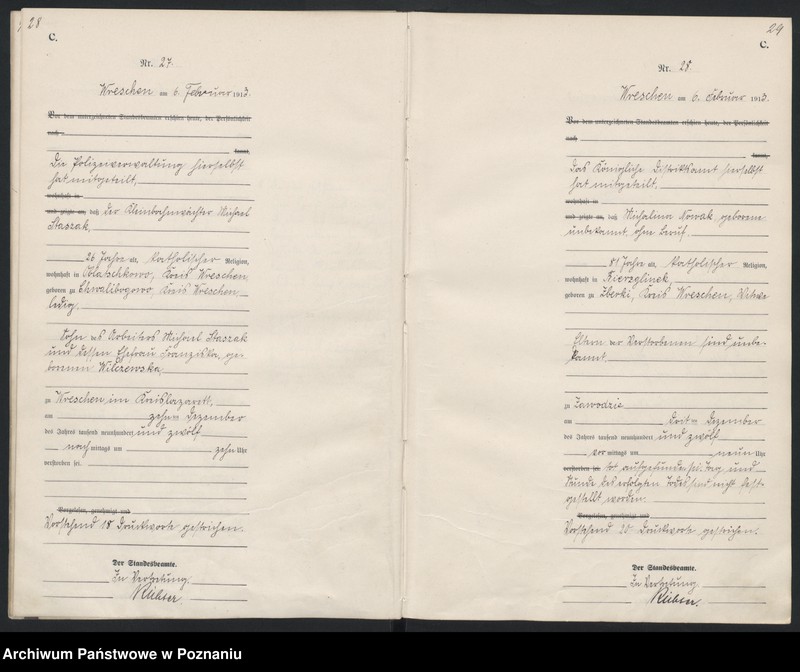 28
C.
Nr. 27.
Wreschen am 6. Februar 1913.
Vor dem unterzeichneten Standesbeamten erschien heute, der Persönlichkeit
nach
kannt,
Die Polizeiverwaltung hierselbst
hat mitgeteilt,
wohnhaft in
und zeigte an, daß der Kleinbahnwächter Michael
Staszak,
26 Jahre alt, katholischer Religion,
wohnhaft in Kreis Wreschen
geboren zu Chwalibogowo, Kreis Wreschen,
ledig,
Sohn des Arbeiters Michael Staszak
und dessen Ehefrau Franziska, ge-
borenen Wilczewska
zu Wreschen, im Kreislazarett,
am zehn Dezember
des Jahres tausend neunhundert und zwölf
nach mittags um zehn Uhr
verstorben sei.
Vorgelesen, genehmigt und
Vorstehend 18 Druckworte gestrichen.
Der Standesbeamte.
In Vertretung.
29
C.
Nr. 28.
Wreschen am 6. Februar 1913.
Vor dem unterzeichneten Standesbeamten erschien heute, der Persönlichkeit
nach
kannt,
Das Königliche Distriktsamt hierselbst
hat mitgeteilt,
wohnhaft in
und zeigte an, daß Michalina Nowak geborene
unbekannt, ohne Beruf,
81 Jahre alt, katholischer Religion,
wohnhaft in
geboren zu Zberki, Kreis Wreschen, Witwe
Eltern der Verstorbenen sind unbe-
kannt
zu Zawodzie
am Dezember
des Jahres tausend neunhundert und zwölf
vor mittags um neun Uhr
verstorben sei. tot aufgefunden sei. Tag und
Stunde des erfolgten Todes sind nicht fest-
gestellt worden.
Vorgelesen, genehmigt und
Vorstehend 20 Druckworte gestrichen.
Der Standesbeamte.
In Vertretung.
Archiwum Państwowe w Poznaniu